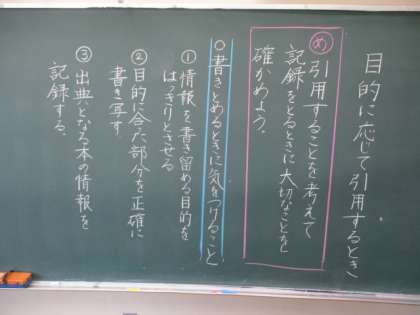 目的に応じて引用するとき
め 引用することを考えて
記録をとるときに大切なことを
確かめよう。
○書きとめるときに気をつけること
① 情報を書き留める目的を
はっきりとさせる
② 目的に合った部分を正確に
書き写す
③ 出典となる本の情報を
記録する。